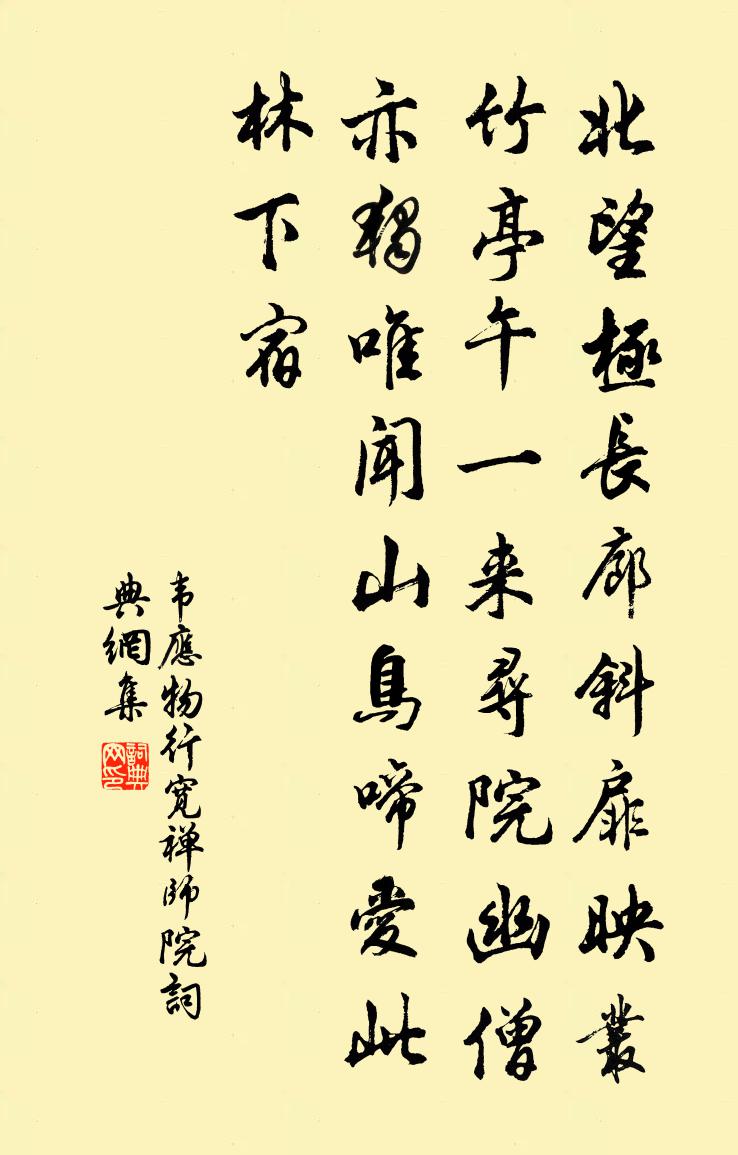 北望極長廊斜扉映叢
竹亭午一来尋院幽僧
亦獨唯聞山鳥啼愛此
林下宿
韦應物行寬禅師院詞
典網集
詞典
网印